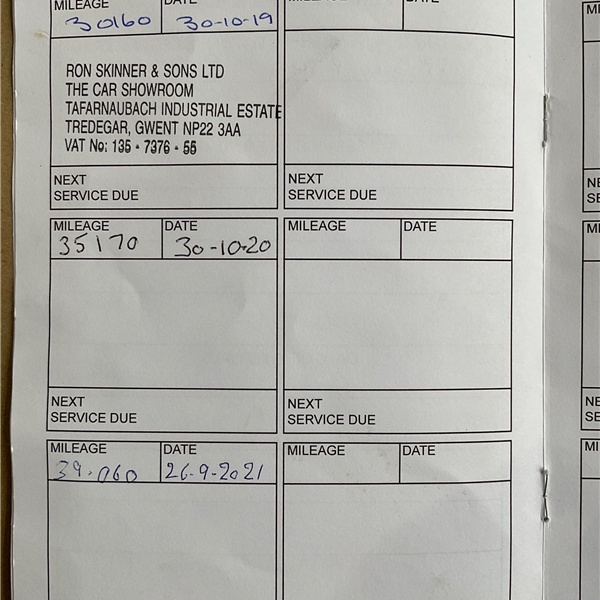 MILEAGE DATE
30160 30-10-19
RON SKINNER & SONS LTD
THE CAR SHOWROOM
TAFARNAUBACH INDUSTRIAL ESTATE
TREDEGAR, GWENT NP22 3AA
VAT No: 135 - 7376 - 55
NEXT
SERVICE DUE
NEXT
SERVICE DUE
MILEAGE DATE
35170 30-10-20
MILEAGE DATE
NEXT
SERVICE DUE
NEXT
SERVICE DUE
MILEAGE DATE
39.060 26-9-2021
MILEAGE DATE